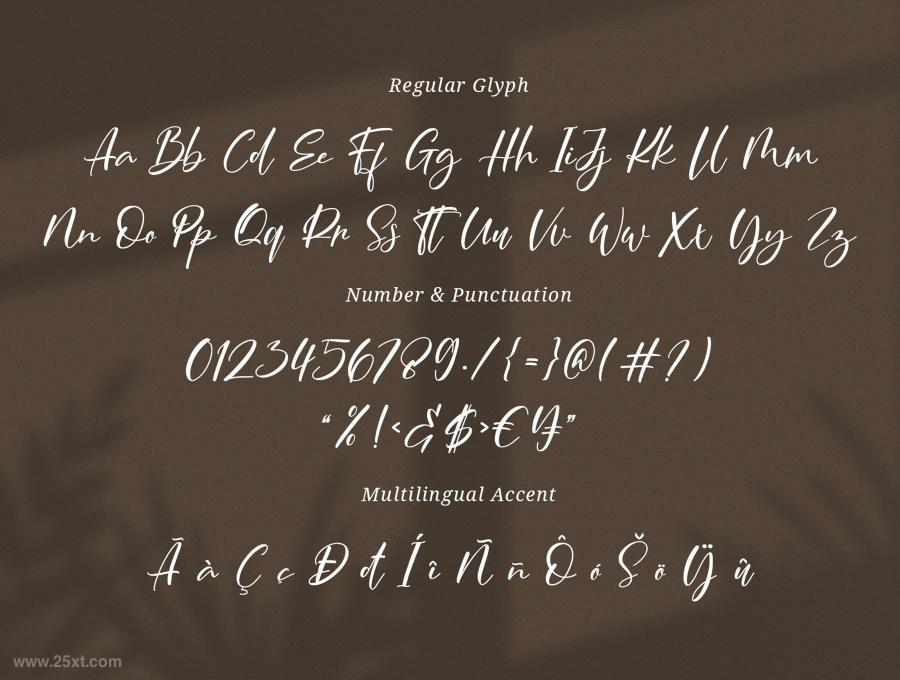 Regular Glyph
Aa Bb Cc Dd Ee Ff Gg Hh Ii Jj Kk Ll Mm
Nn Oo Pp Qq Rr Ss Tt Uu Vv Ww Xx Yy Zz
Number & Punctuation
0123456789./{=}@(#?)
“%!<&$>€¥”
Multilingual Accent
Ã à Ç ç Đ đ Í î Ñ ñ Ô ó Š ö Ÿ û
www.25xt.com